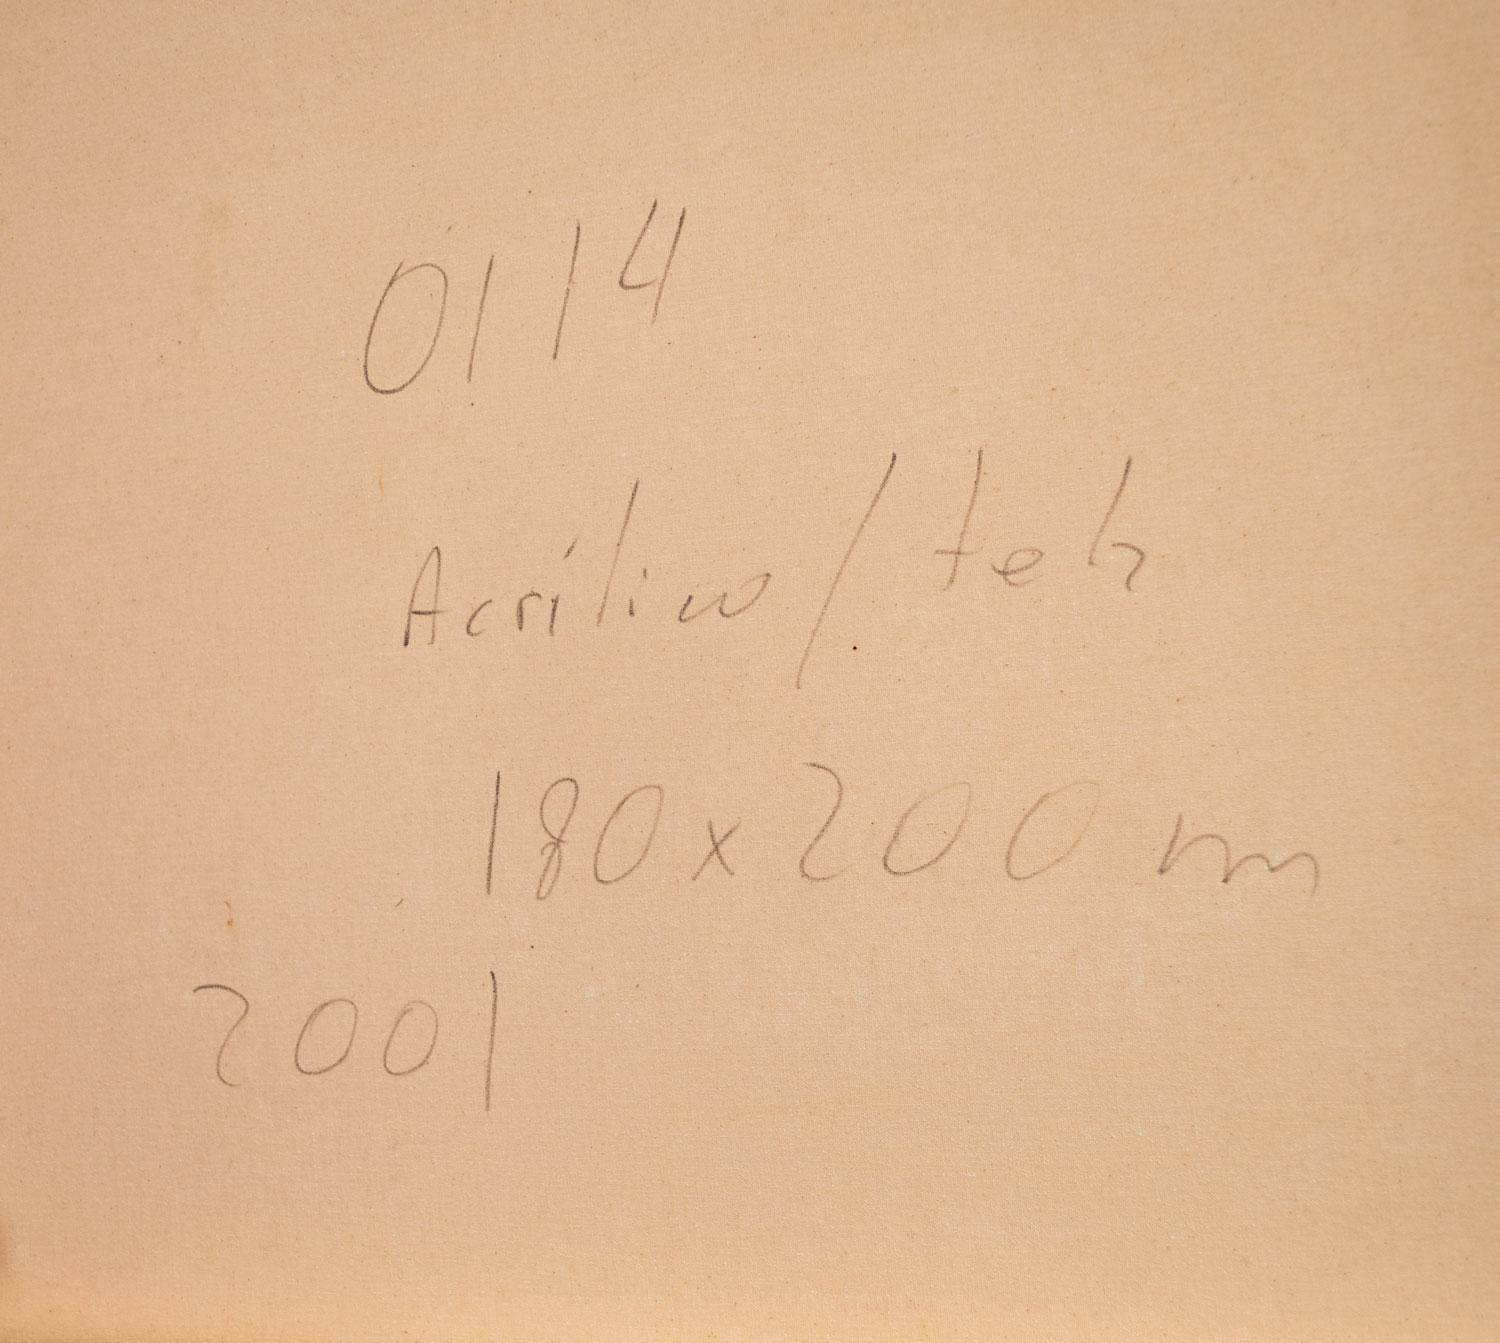 0114
Acrílico / tela
180 x 200 cm
2001